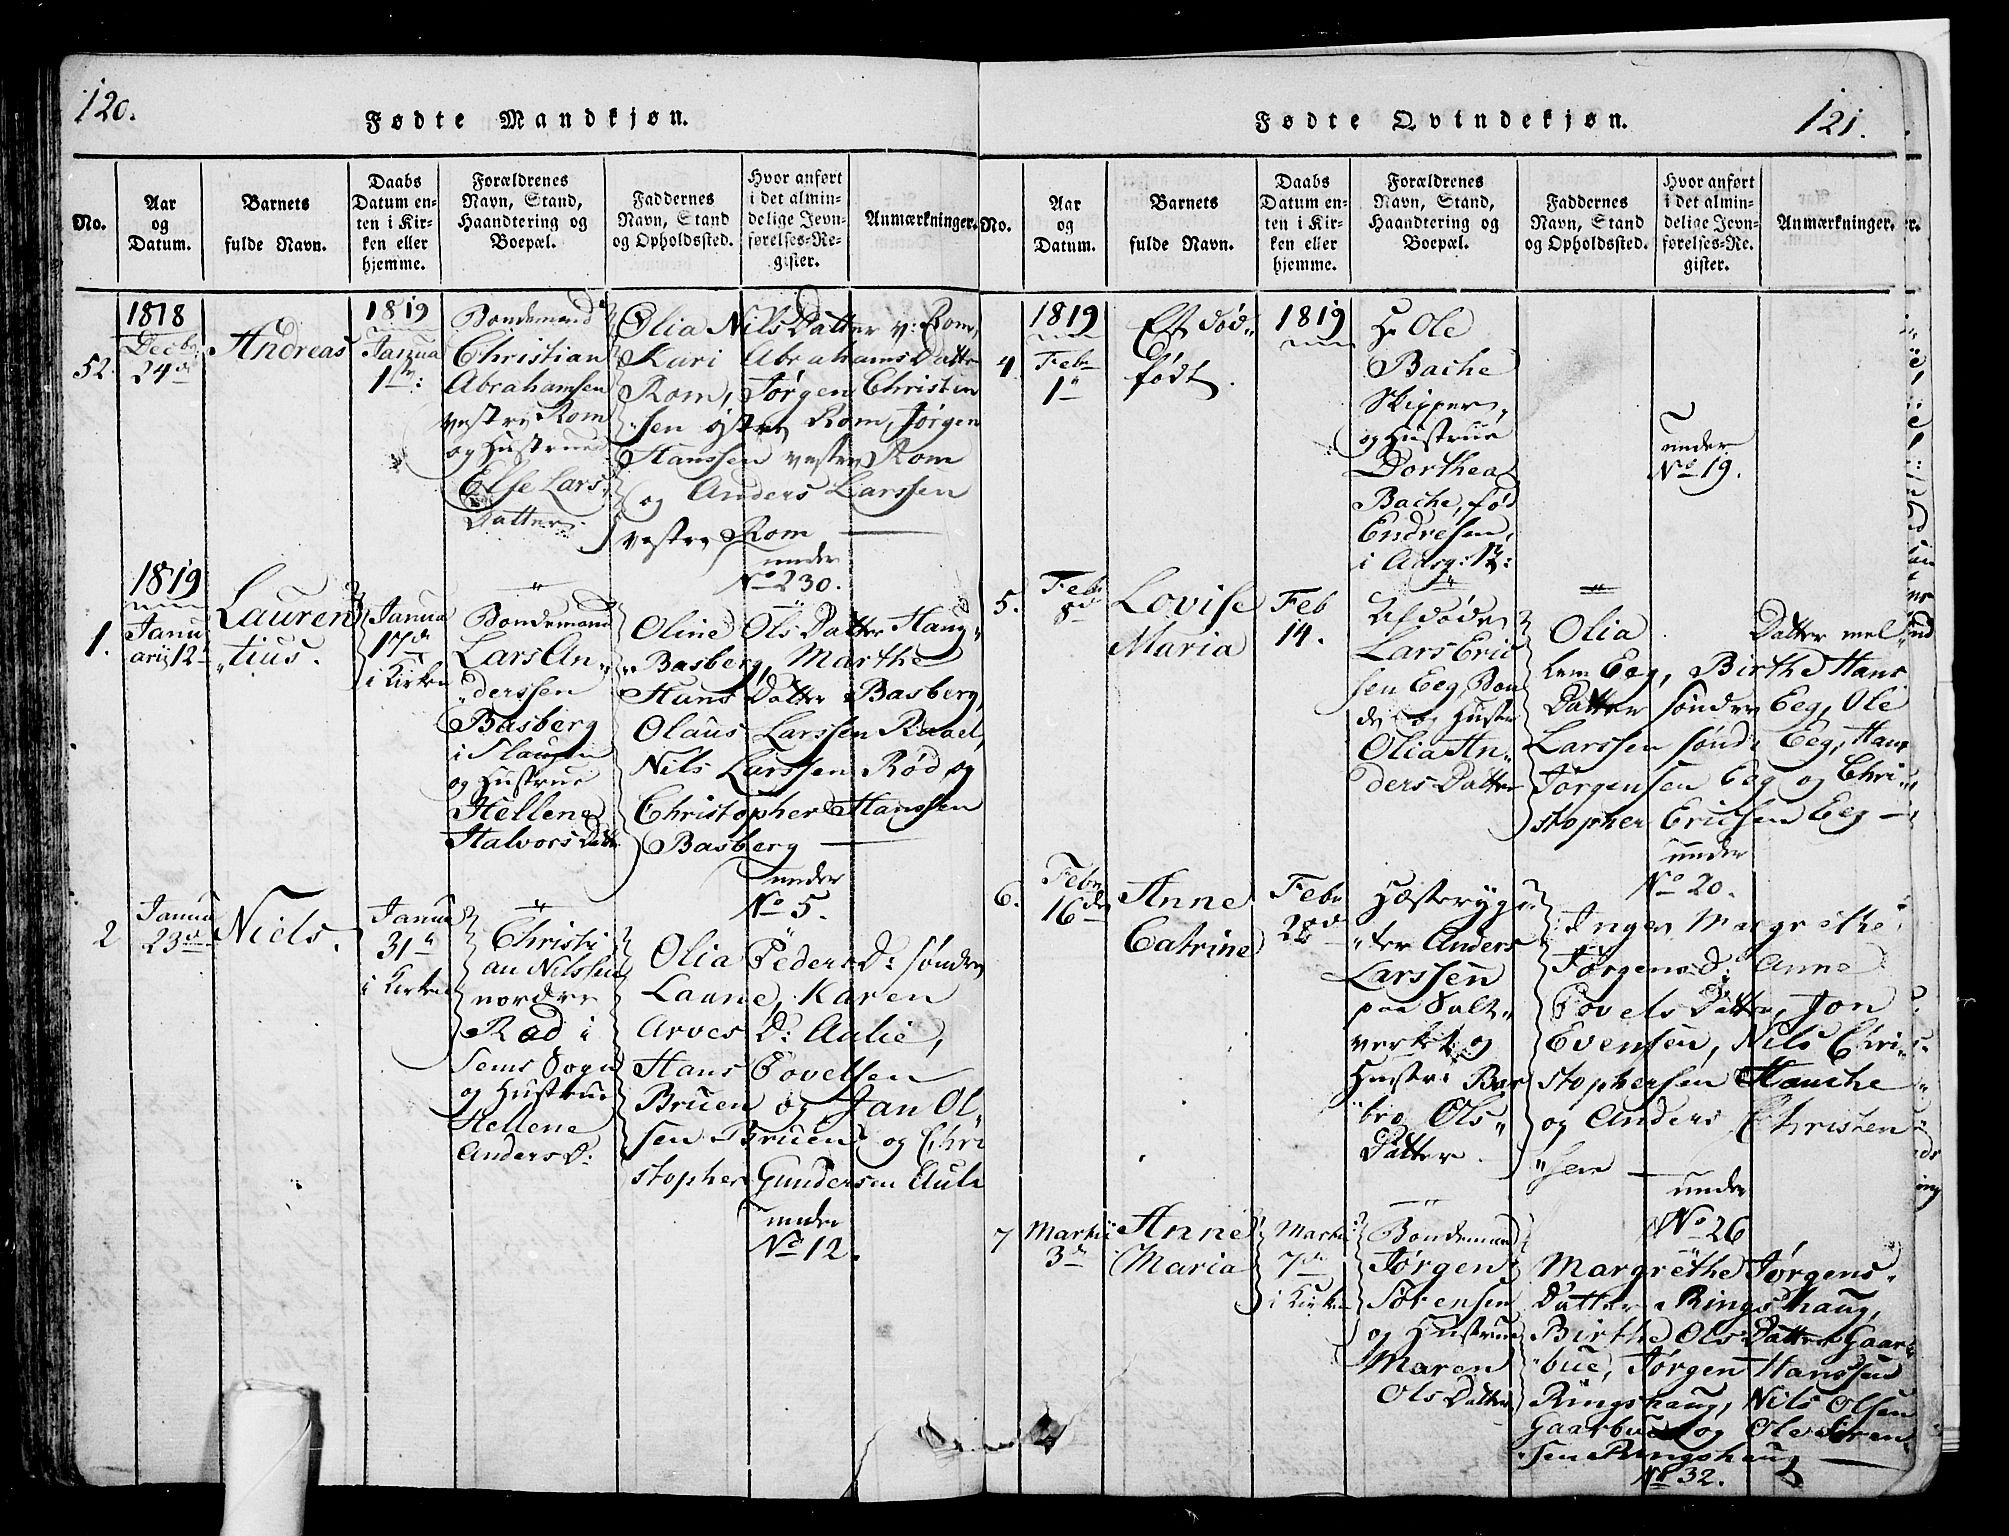 120.
Fødte Mandkjøn.
No.
Aar
og
Datum.
Barnets
fulde Navn.
Daabs
Datum en-
ten i Kir-
ken eller
hjemme.
Forældrenes
Navn, Stand,
Haandtering og
Boepæl.
Faddernes
Navn, Stand
og Opholdssted.
Hvor anført
i det almin-
delige Jevn-
førelses-Re-
gister.
Anmærkninger.
52.
1818
Decbr
24de
Andreas
1819
Janua
1ste:
Bondemand
Christian
Abrahamsen
vestre Rom
og Hustrue
Else Lars
Datter.
Olia Nils Datter v: Rom,
Kari Abrahams Datter
Rom, Jørgen Christen
sen østre Rom, Jørgen
Hanssen vestre Rom
og Anders Larssen
vestre Rom
under
No 230.
1.
1819
Janu
arii 12
Lauren
tius.
Janua
17de
i Kirken
Bondemand
Lars An
derssen
Basberg
i Slauen
og Hustrue
Hellene
Halvors Datter
Oline Ols Datter Haug
Basberg, Marthe
Hans Datter Basberg,
Olaus Larssen Raael,
Nils Larssen Rød og
Christopher Hanssen
Basberg
under
No 5.
2
Janua
23de
Niels.
Janua
31te
i Kirken
Christi
an Nilssen
nordre
Rød i
Sems Sogn
og Hustrue
Hellene
Anders D:
Olia Peders D: søndre
Laune, Karen
Arves D: Aulie,
Hans Povelsen
Bruen og Jan Ol
sen Bruen og Chri
stopher Gundersen Auli
under
No 12.
Fødte Qvindekjøn.
121.
No.
Aar
og
Datum.
Barnets
fulde Navn.
Daabs
Datum en-
ten i Kir-
ken eller
hjemme.
Forældrenes
Navn, Stand,
Haandtering og
Boepæl.
Faddernes
Navn, Stand
og Opholdssted.
Hvor anført
i det almin-
delige Jevn-
førelses-Re-
gister.
Anmærkninger.
4.
1819
Feb
1
Et død
født.
1819
Hr Ole
Bache
Skipper,
og Hustrue
Dorthea
Bache, fød
Endresen,
i Aasg: 12:
under
No 19.
5.
Feb
8de
Lovise
Maria
Feb
14.
Afdøde
Lars Eric
sen Eeg Bon
de og Hustr
Olia An
ders Datter
Olia Datter mel
lem Eeg, Birthe Hans
Datter søndre Eeg, Ole
Larssen sønd: Eeg, Hans
Jørgensen Eeg og Chri
stopher Ericsen Eeg
under
No 20.
6.
Feb
16de
Anne
Catrine
Feb
28de
Anders
Larssen
paa Salt
verket og
Hustr: Bar
bro Ols
Datter.
Inger Margrethe
Jørgens D: Anne
Povels Datter, Jon
Evensen, Nils Chri
stophersen Hauche
og Anders Christen
sen
under
No 26
7
Martii
3de
Anne
Maria
Martii
7de
i Kirken
Bondemand
Jørgen
Sørensen
og Hustrue
Maren
Ols Datter
Margrethe Jørgens
Datter Ringshaug,
Birthe Ols Datter Gaar
bue, Jørgen Hanssen
Ringshaug, Nils Olsen
Gaarbue og Ole Søren
sen Ringshaug
No 32.